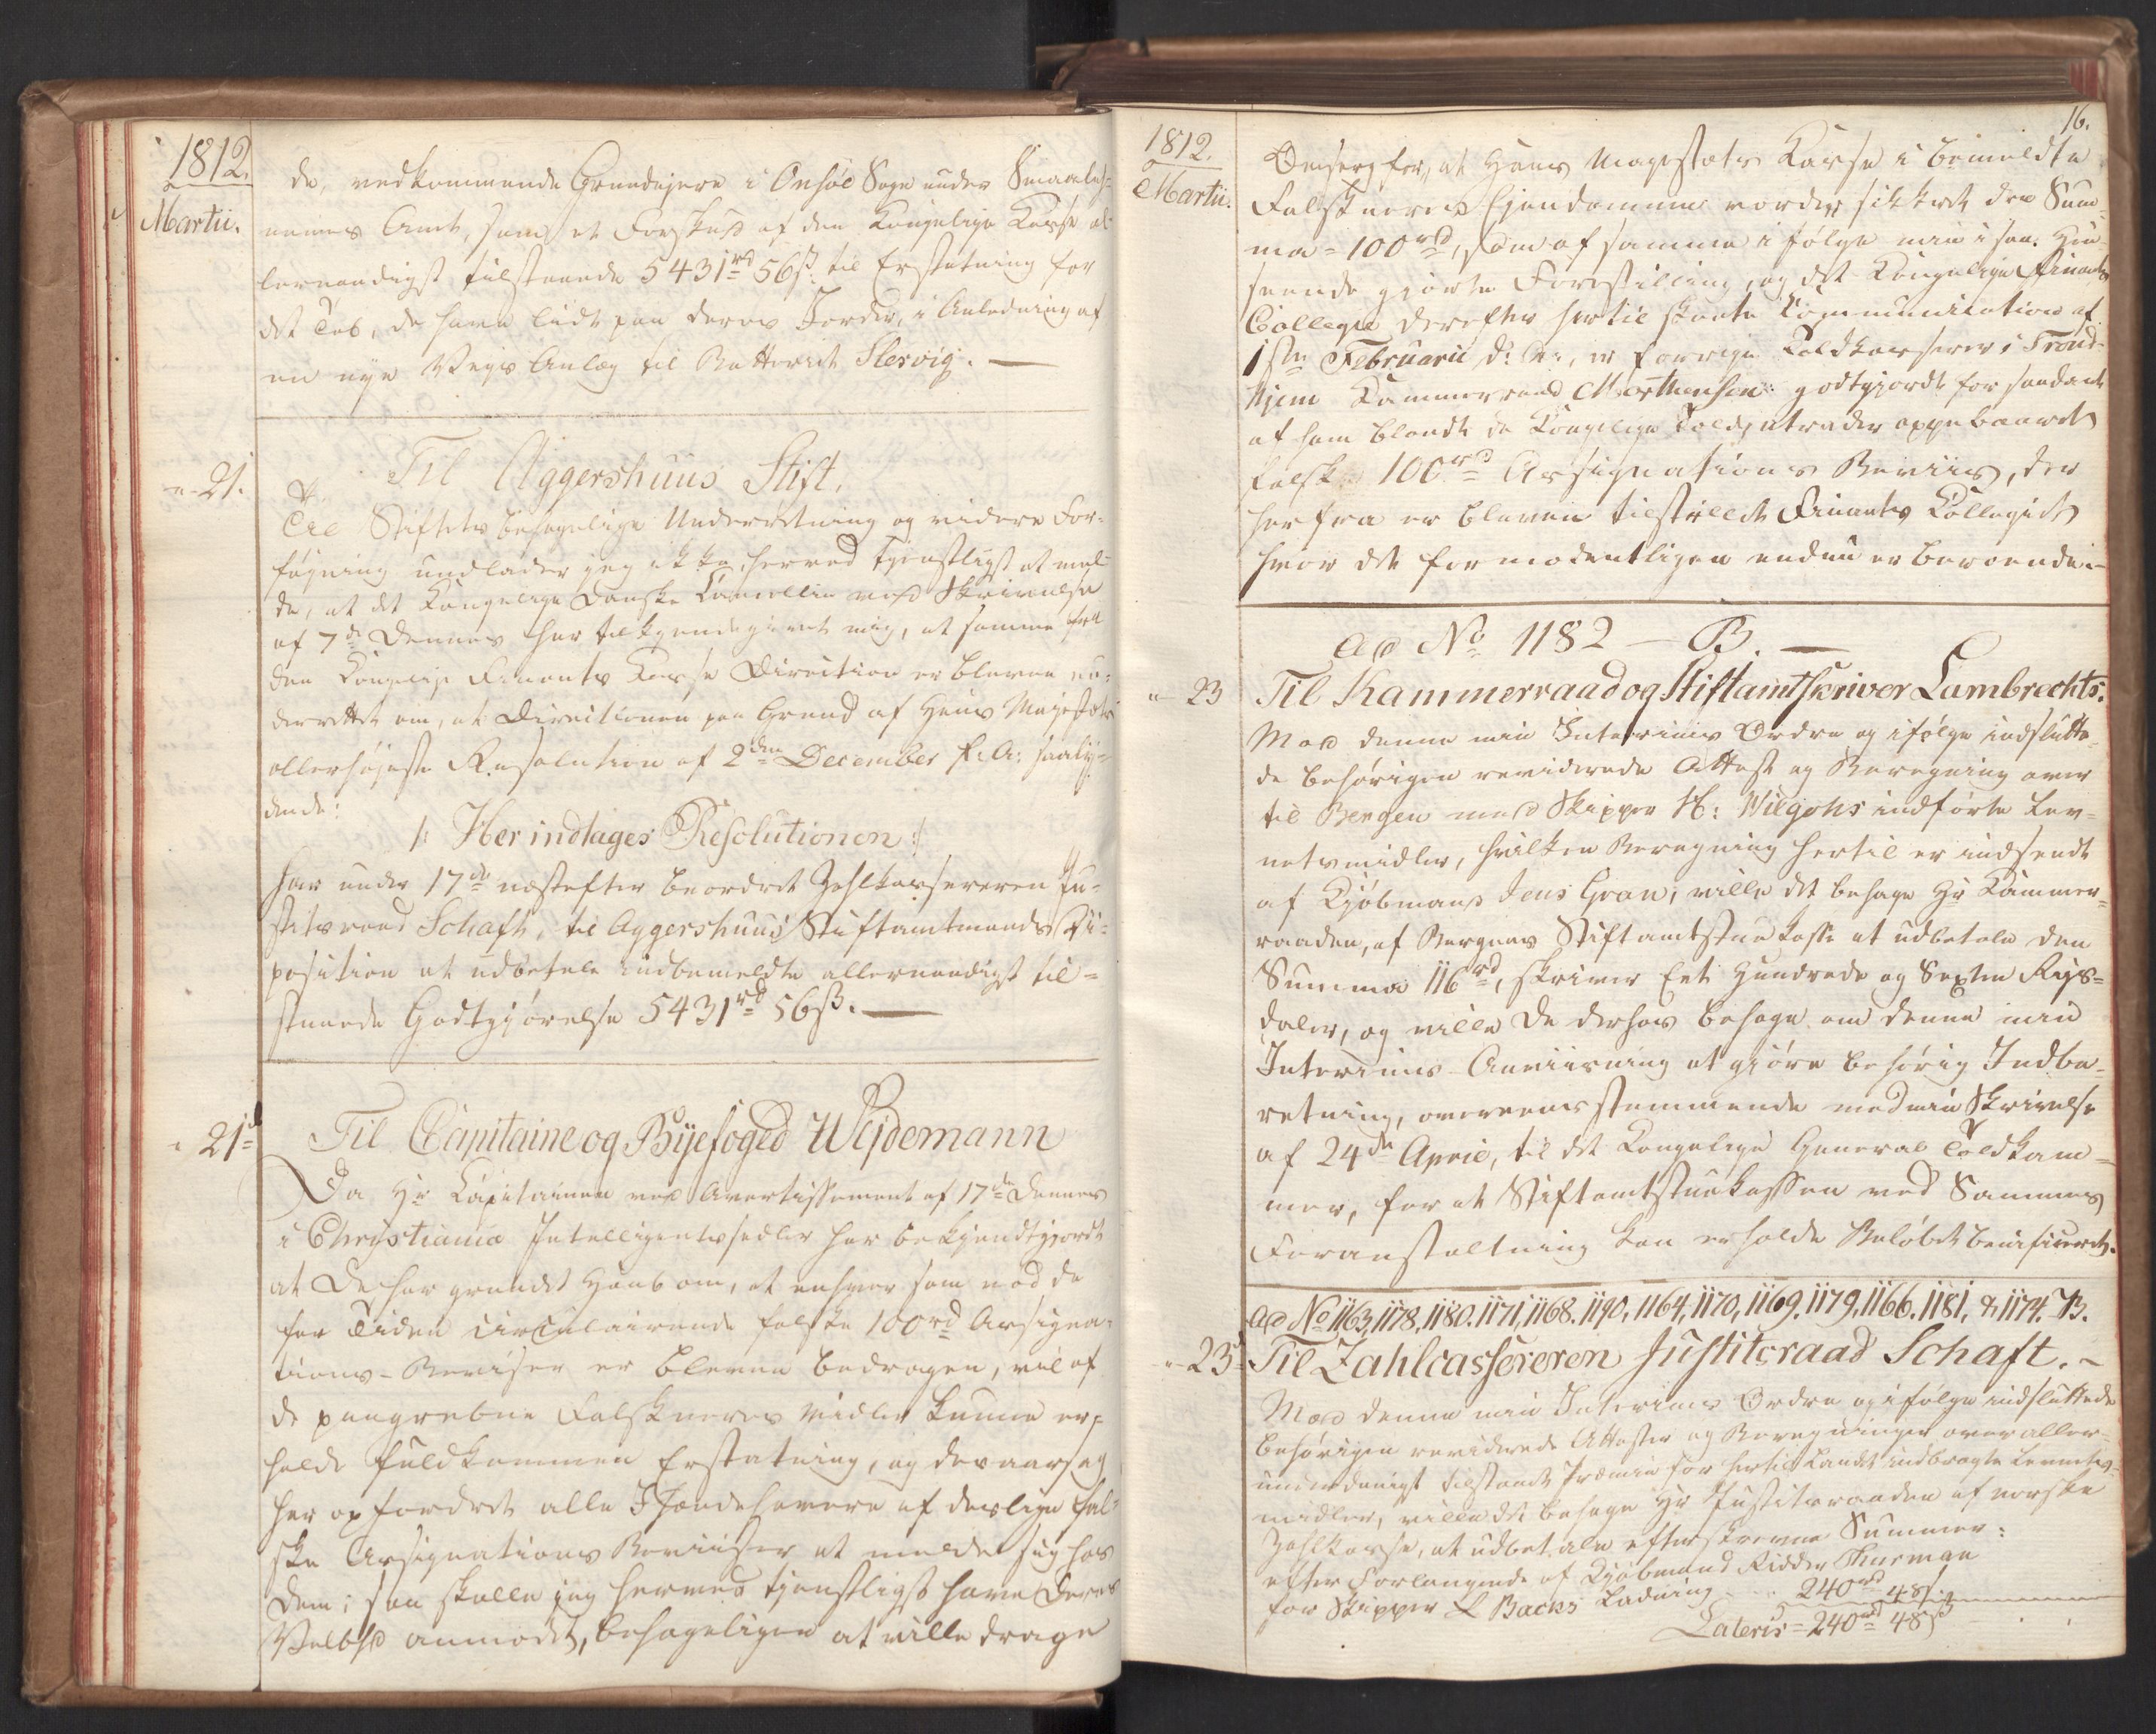 1812.
Martii.
de, vedkommende Grundejere i Onsøe Sogn under Smaaleh-
nenes Amt, som et Forskud af den Kongelige Kasse al-
lernaadigst tilstaaede 5431rd 56ß til Erstatning for
det Tab, de have lidt paa deres Jorder, i Anledning af
en nye Veys Anlæg til Batteriet Slesvig. —
21.
Til Aggershuus Stift.
Til Stiftets behagelige Underretning og videre For-
føyning undlader jeg ikke herved tjenstligst at mel-
de, at det Kongelige Danske Cancellie med Skrivelse
af 7de dennes har tilkjendegivet mig, at samme fra
den Kongelige Finants Kasse Direction er bleven un-
derrettet om, at Directionen paa Grund af Hans Majestæts
allerhøjeste Resolution af 2den December f: A: saaly-
dende:
/: Her indtages Resolutionen :/
har under 17de næstefter beordret Zahlkassereren Ju-
stitsraad Schaft, til Aggershuus Stiftamtmands Di-
position at udbetale indbemeldte allernaadigst til-
staaede Godtgjørelse 5431rd 56ß. —
21de
Til Capitaine og Byefoged Wejdemann
Da Hr Capitainen ved Avertissement af 17de dennes
i Christiania Intelligentssedler har bekjendtgjordt
at De har grundet Haab om, at enhver som ved de
for Tiden circulairende falske 100rd Assigna-
tions-Beviser er bleven bedragen, vil af
de paagrebne Falskneres Midler kunne er-
holde fuldkommen Erstatning, og desaarsag
har opfordret alle Ihændehavere af deslige fal-
ske Assignations Beviiser at melde sig hos
Dem; saa skulle jeg herved tjenstligst have Deres
Velbhd anmodet, behageligen at ville drage
16.
1812.
Martii.
Omsorg for, at Hans Majestæts Kasse i bemeldte
Falskneres Ejendomme vorder sikkret den Sum-
ma = 100rd, som af samme i følge min i saa Hen-
seende gjorte Forestilling, og det Kongelige Finants
Collegii derefter hertil skeete Communication af
1ste Februarii d: A:, er forrige Toldkasserer i Trond-
hjem Kammerraad Morthensen godtgjordt for saadant
af ham blandt de Kongelige Toldintrader oppebaaret
falsk 100rd Assignations Beviis, der
herfra er bleven tilstillet Finants Collegiet
hvor det formodentligen endnu er beroende.-
Ad No 1182 — B. —
23
Til Kammerraad og Stiftamtskriver Lambrechts.
Mod denne min Interims Ordre og ifølge indslutte-
de behørigen reviderede Attest og Beregning over
til Bergen med Skipper H: Wilgohs indførte Lev-
netsmidler, hvilken Beregning hertil er indsendt
af Kjøbmand Jens Gran, ville det behage Hr Kammer-
raaden, af Bergens Stiftamtstue Kasse at udbetale den
Summa 116rd, skriver Eet Hundrede og Sexten Rigs-
daler, og ville De derhos behage om denne min
Interims-Anviisning at gjøre behørig Indbe-
retning, overeensstemmende med min Skrivelse
af 24de April, til det Kongelige General Toldkam-
mer, for at Stiftamtstuekassen ved Sammes
Foranstaltning kan erholde Beløbet beneficeret.
Ad No 1163, 1178, 1180. 1171, 1168. 1190, 1164, 1170, 1169. 1179, 1166. 1181, & 1174. B.
23
Til Zahlcassereren Justitsraad Schaft. -
Mod denne min Interims Ordre og ifølge indsluttede
behørigen reviderede Attester og Beregninger over aller-
underdanigst tilstaaet Præmie for hertil Landet indbragte Levnets-
midler, ville det behage Hr Justitsraaden af norske
Zahlkasse, at udbetale efterskrevne Summer:
efter Forlangende af Kjøbmand Ridder Thurman
for Skipper L Backs Ladning . . 240rd 48ß
Lateris = 240rd 48ß